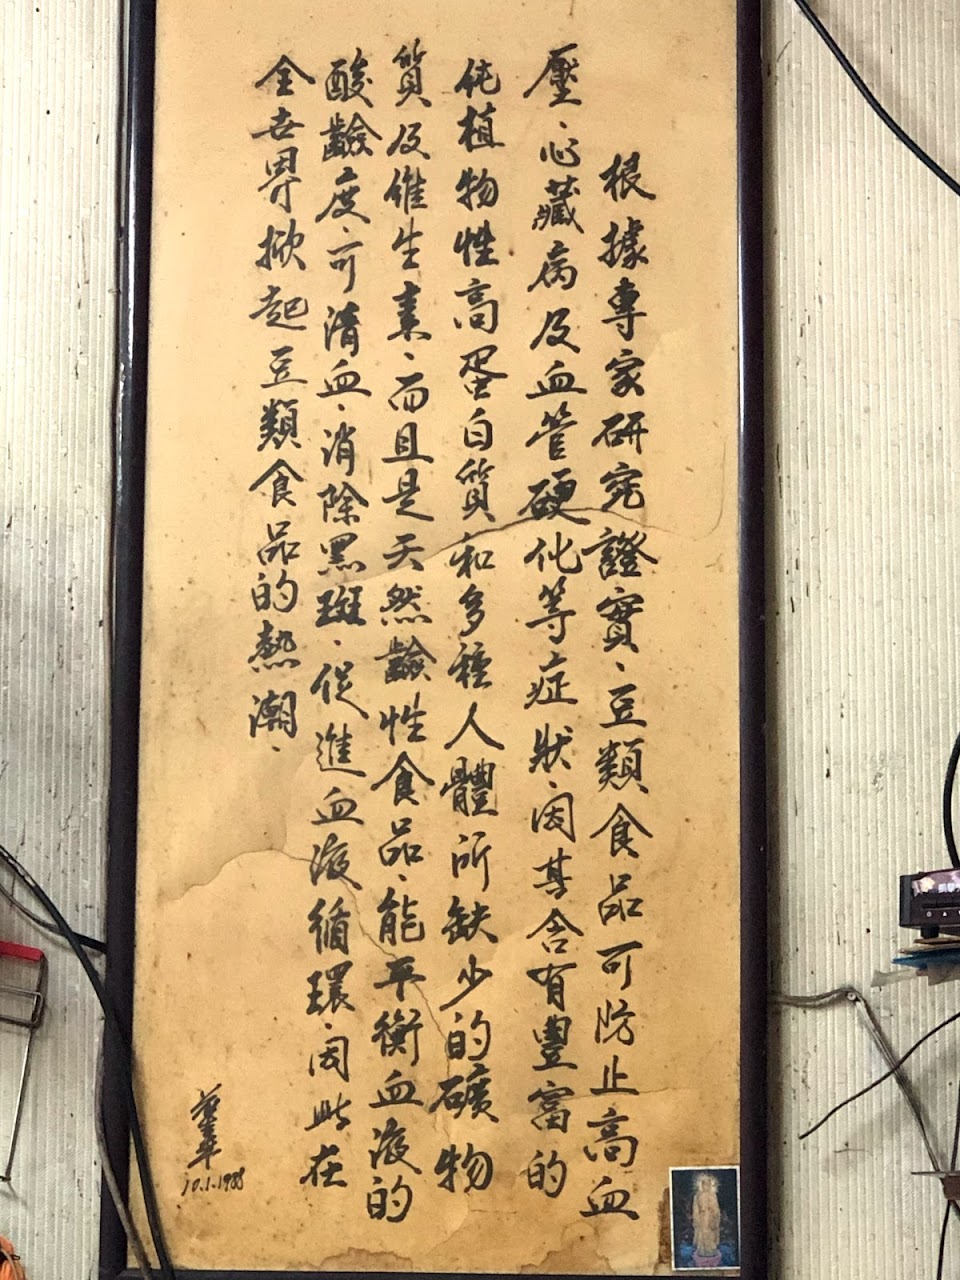 根據專家研究證實、豆類食品可防止高血
壓、心藏病及血管硬化等症狀、因其含有豐富的
純植物性高蛋白質和多種人體所缺少的礦物
質及維生素、而且是天然鹼性食品、能平衡血液的
酸鹼度、可清血、消除黑斑、促進血液循環、因此在
全世界掀起豆類食品的熱潮、
10.1.1988